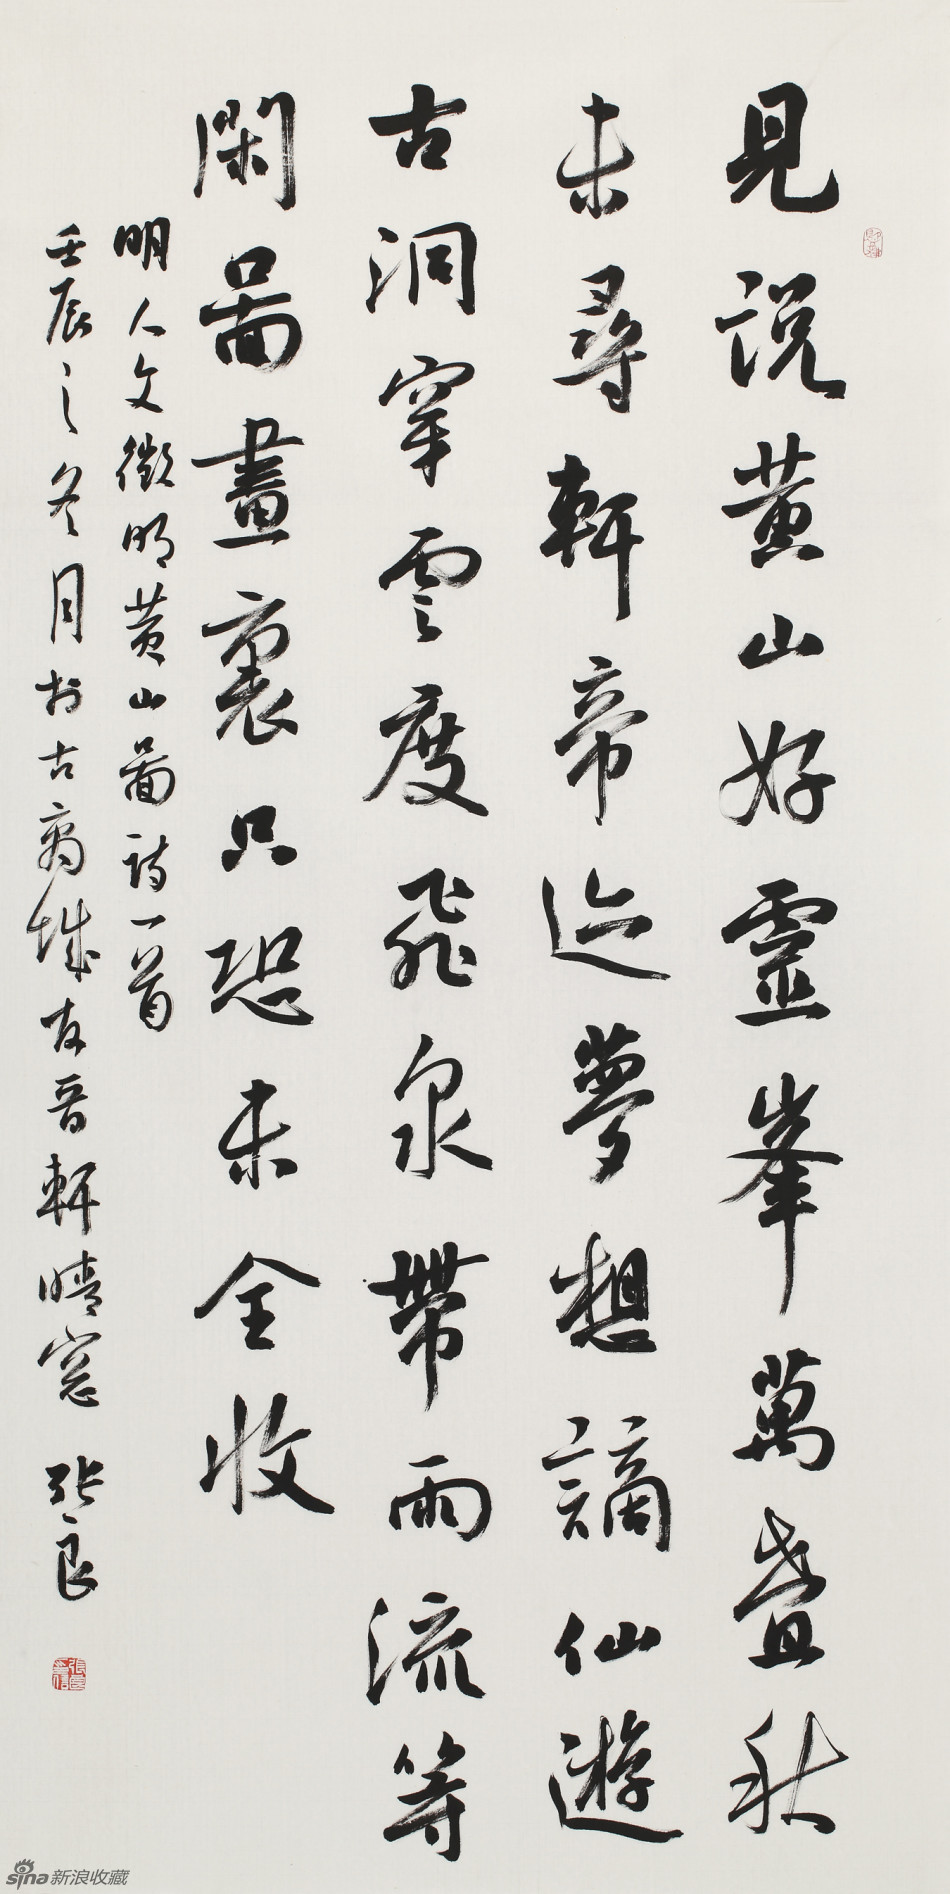 見说黄山好靈峯萬叠秋
未尋軒帝迹夢想謫仙遊
古洞穿雲度飛泉帶雨流等
閑圖畫裏只恐未全收
明人文徵明黄山圖诗一首
壬辰之冬月於古城友軒晴窓 张良
sina新浪收藏